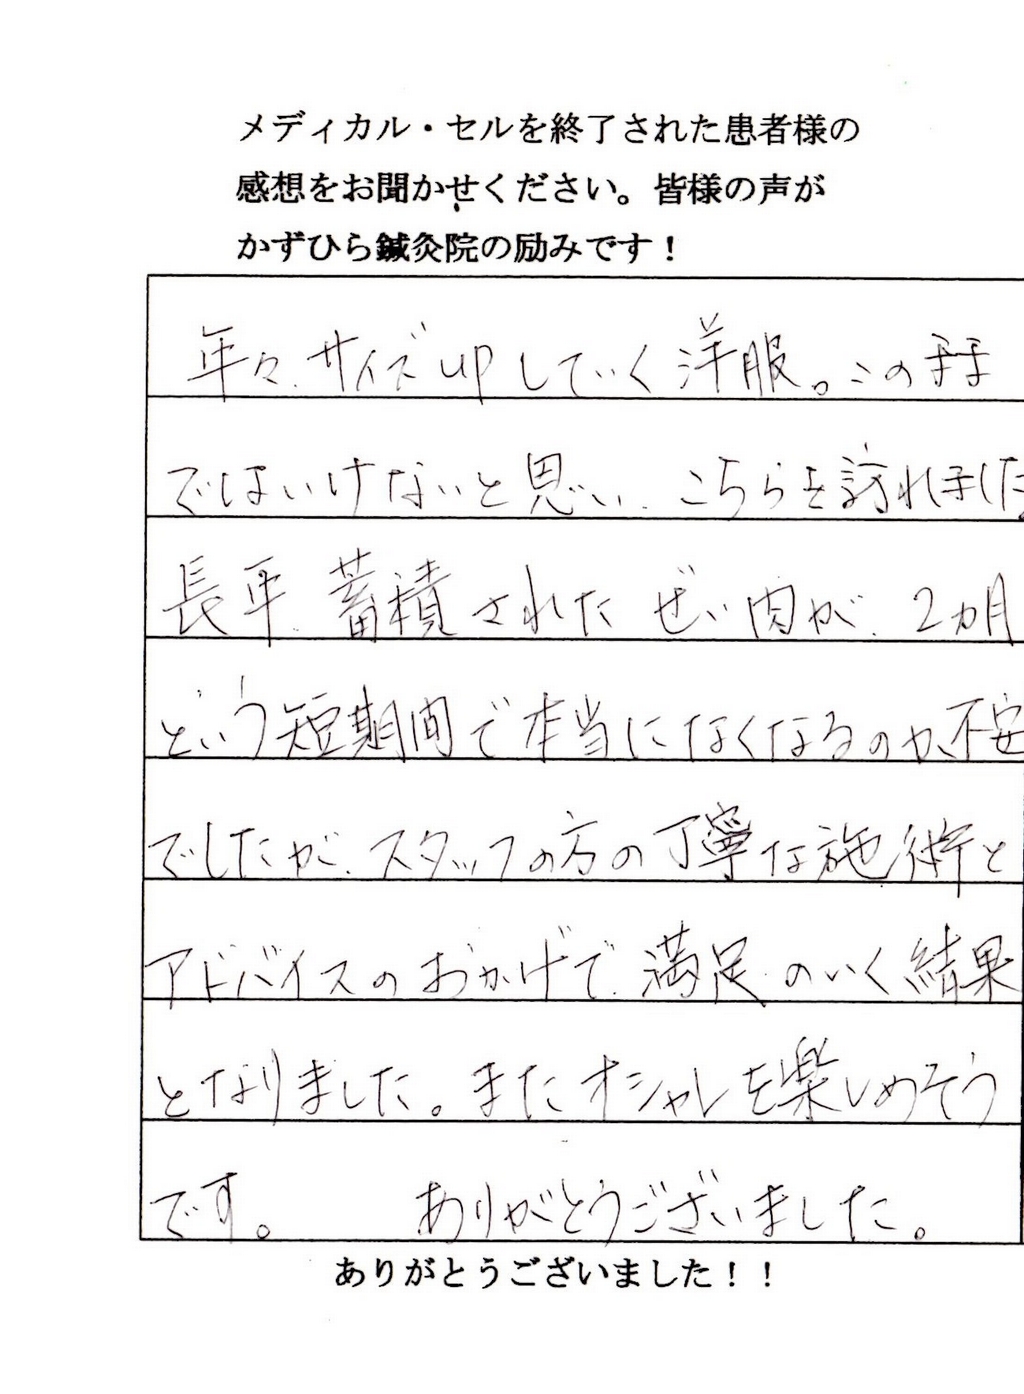 メディカル・セルを終了された患者様の
感想をお聞かせください。皆様の声が
かずひら鍼灸院の励みです！
年々、サイズupしていく洋服。このまま
ではいけないと思い、こちらを訪れました
長年、蓄積されたぜい肉が、2カ月
という短期間で本当になくなるのか、不安
でしたが、スタッフの方の丁寧な施術と
アドバイスのおかげで、満足のいく結果
となりました。またオシャレを楽しめそう
です。 ありがとうございました。
ありがとうございました！！